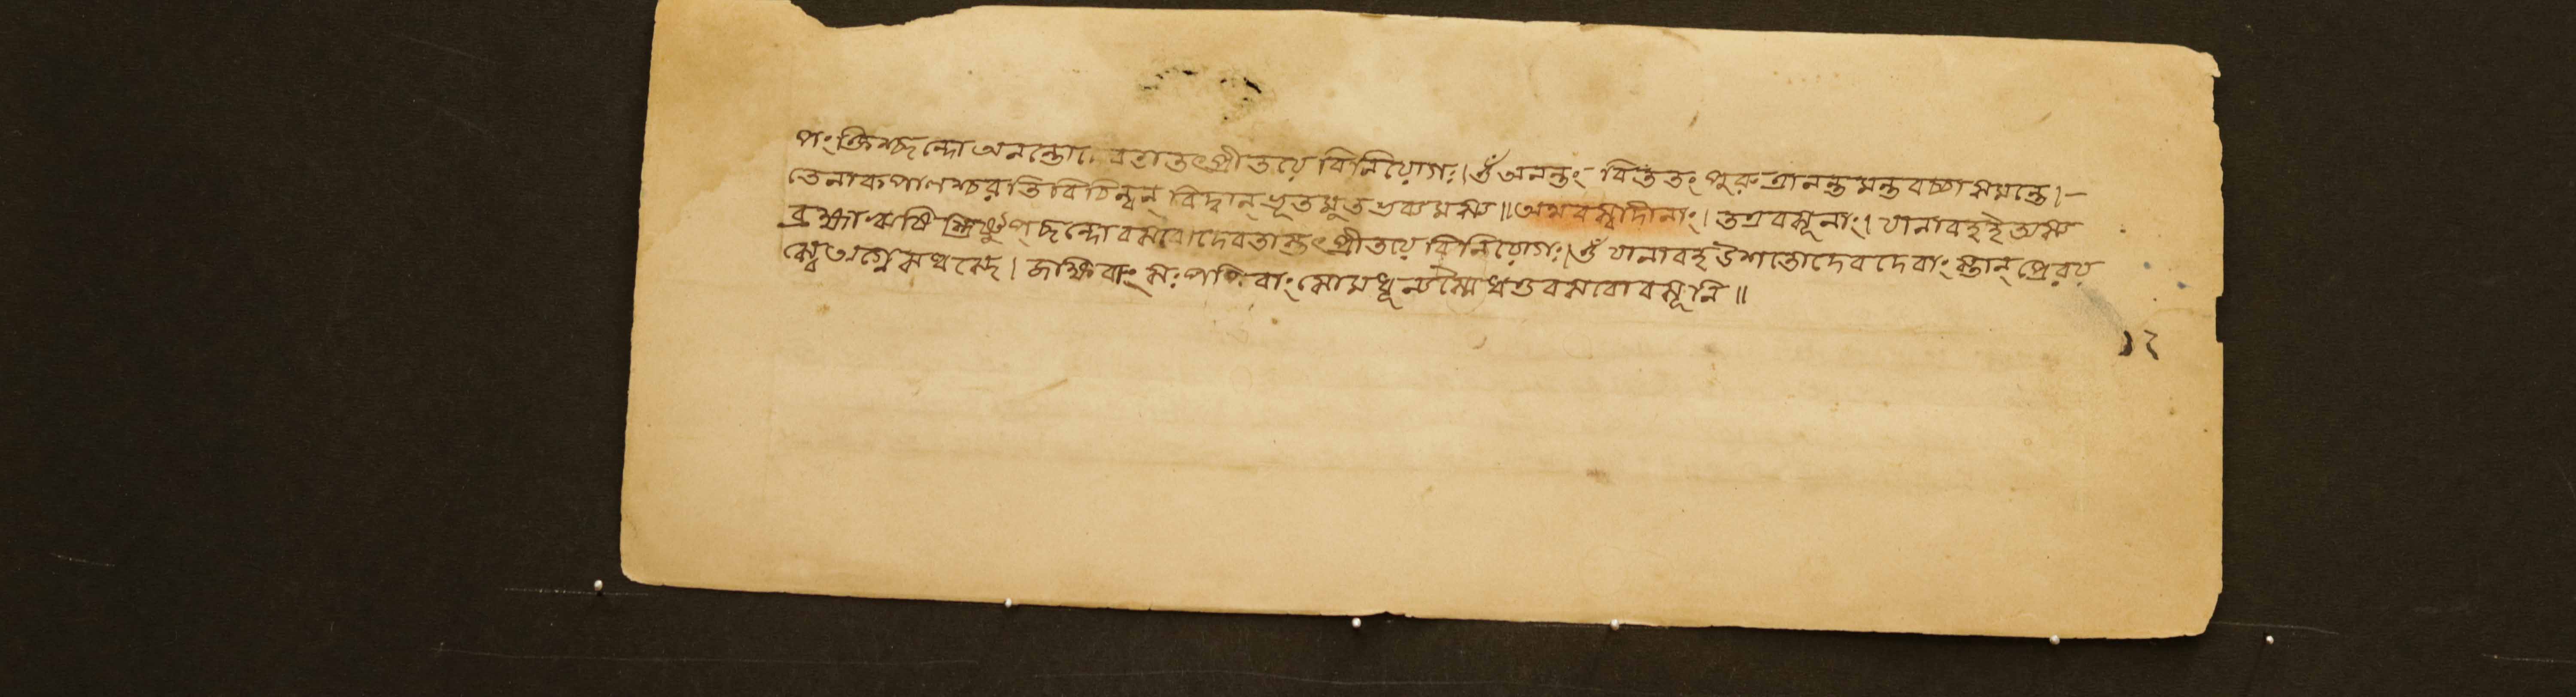 পংক্তিশ্ছন্দো অনন্তো দেবতাতৎপ্রীতয়ে বিনিয়োগঃ।ওঁ অনন্তং বিততং পুরুত্রানন্তমন্তবচ্চা সমন্তে।-
তেনাকপালশ্চরতি বিচিন্বন্ বিদ্বান্ ভূতমুত ভব্যমস্য॥ অথবস্বাদীনাং। তত্রবসূনাং। যানাবহ ইত্যস্য
ব্রহ্মাঋষি স্ত্রিষ্টুপ্ ছন্দোবসবোদেবতাস্তৎপ্রীতয়ে বিনিয়োগঃ।ওঁ যানাবহ উশতোদেবদেবাং স্তান্ প্রেরয়
স্বে অগ্নে সধস্থে। জক্ষিবাং সঃ পপিবাং সোমধূন্যস্মৈ ধত্তবসবোবসূনি॥
১২